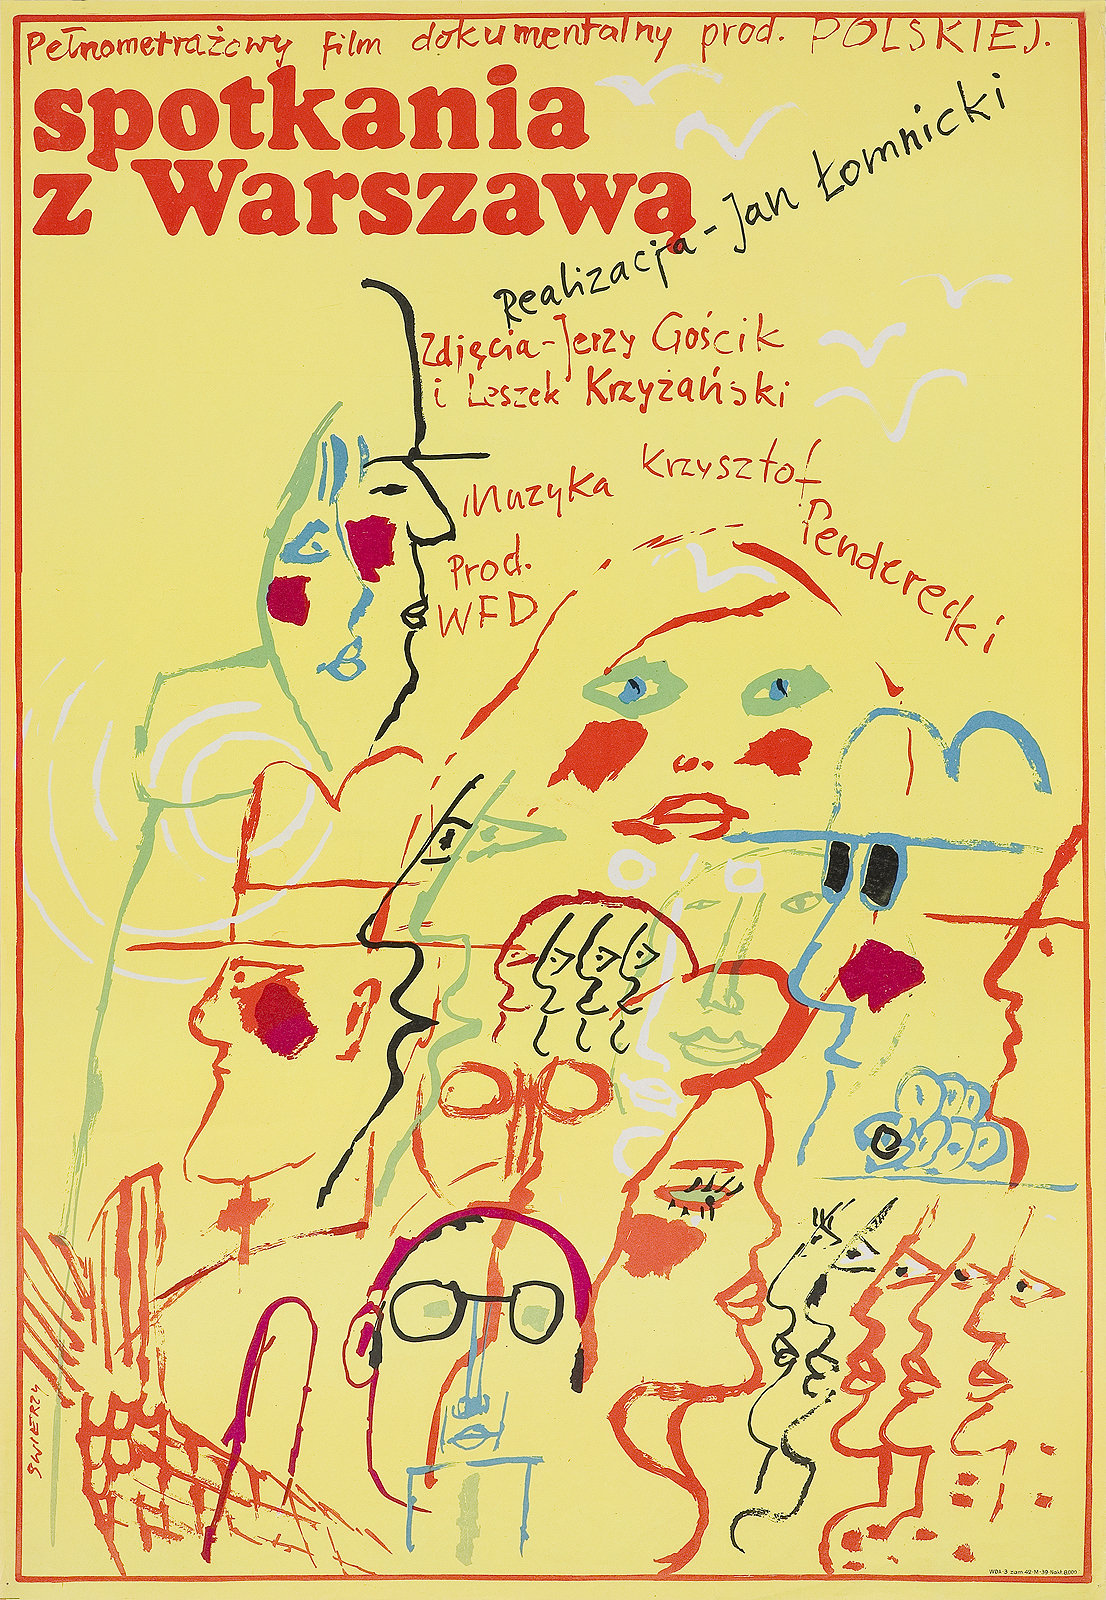 Pełnometrażowy film dokumentalny prod. POLSKIEJ.
spotkania
z Warszawą
Realizacja - Jan Łomnicki
Zdjęcia - Jerzy Gościk
i Leszek Krzyżański
Muzyka Krzysztof
Penderecki
Prod.
WFD
SWIERZY
WDA-3 zam. 42-M-39 Nakł. 8.000